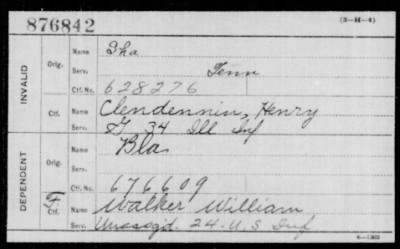 876842
(3-H-4)
INVALID
Orig.
Name Iha
Serv. Tenn
Ctf. No. 628276
Ctf.
Name Clendennin, Henry
Serv. G 34 Ill Inf
DEPENDENT
Orig.
Name Bla
Serv.
Ctf. No. 676609
F
Ctf.
Name Walker William
Serv. Unassgd. 24 - U.S Inf